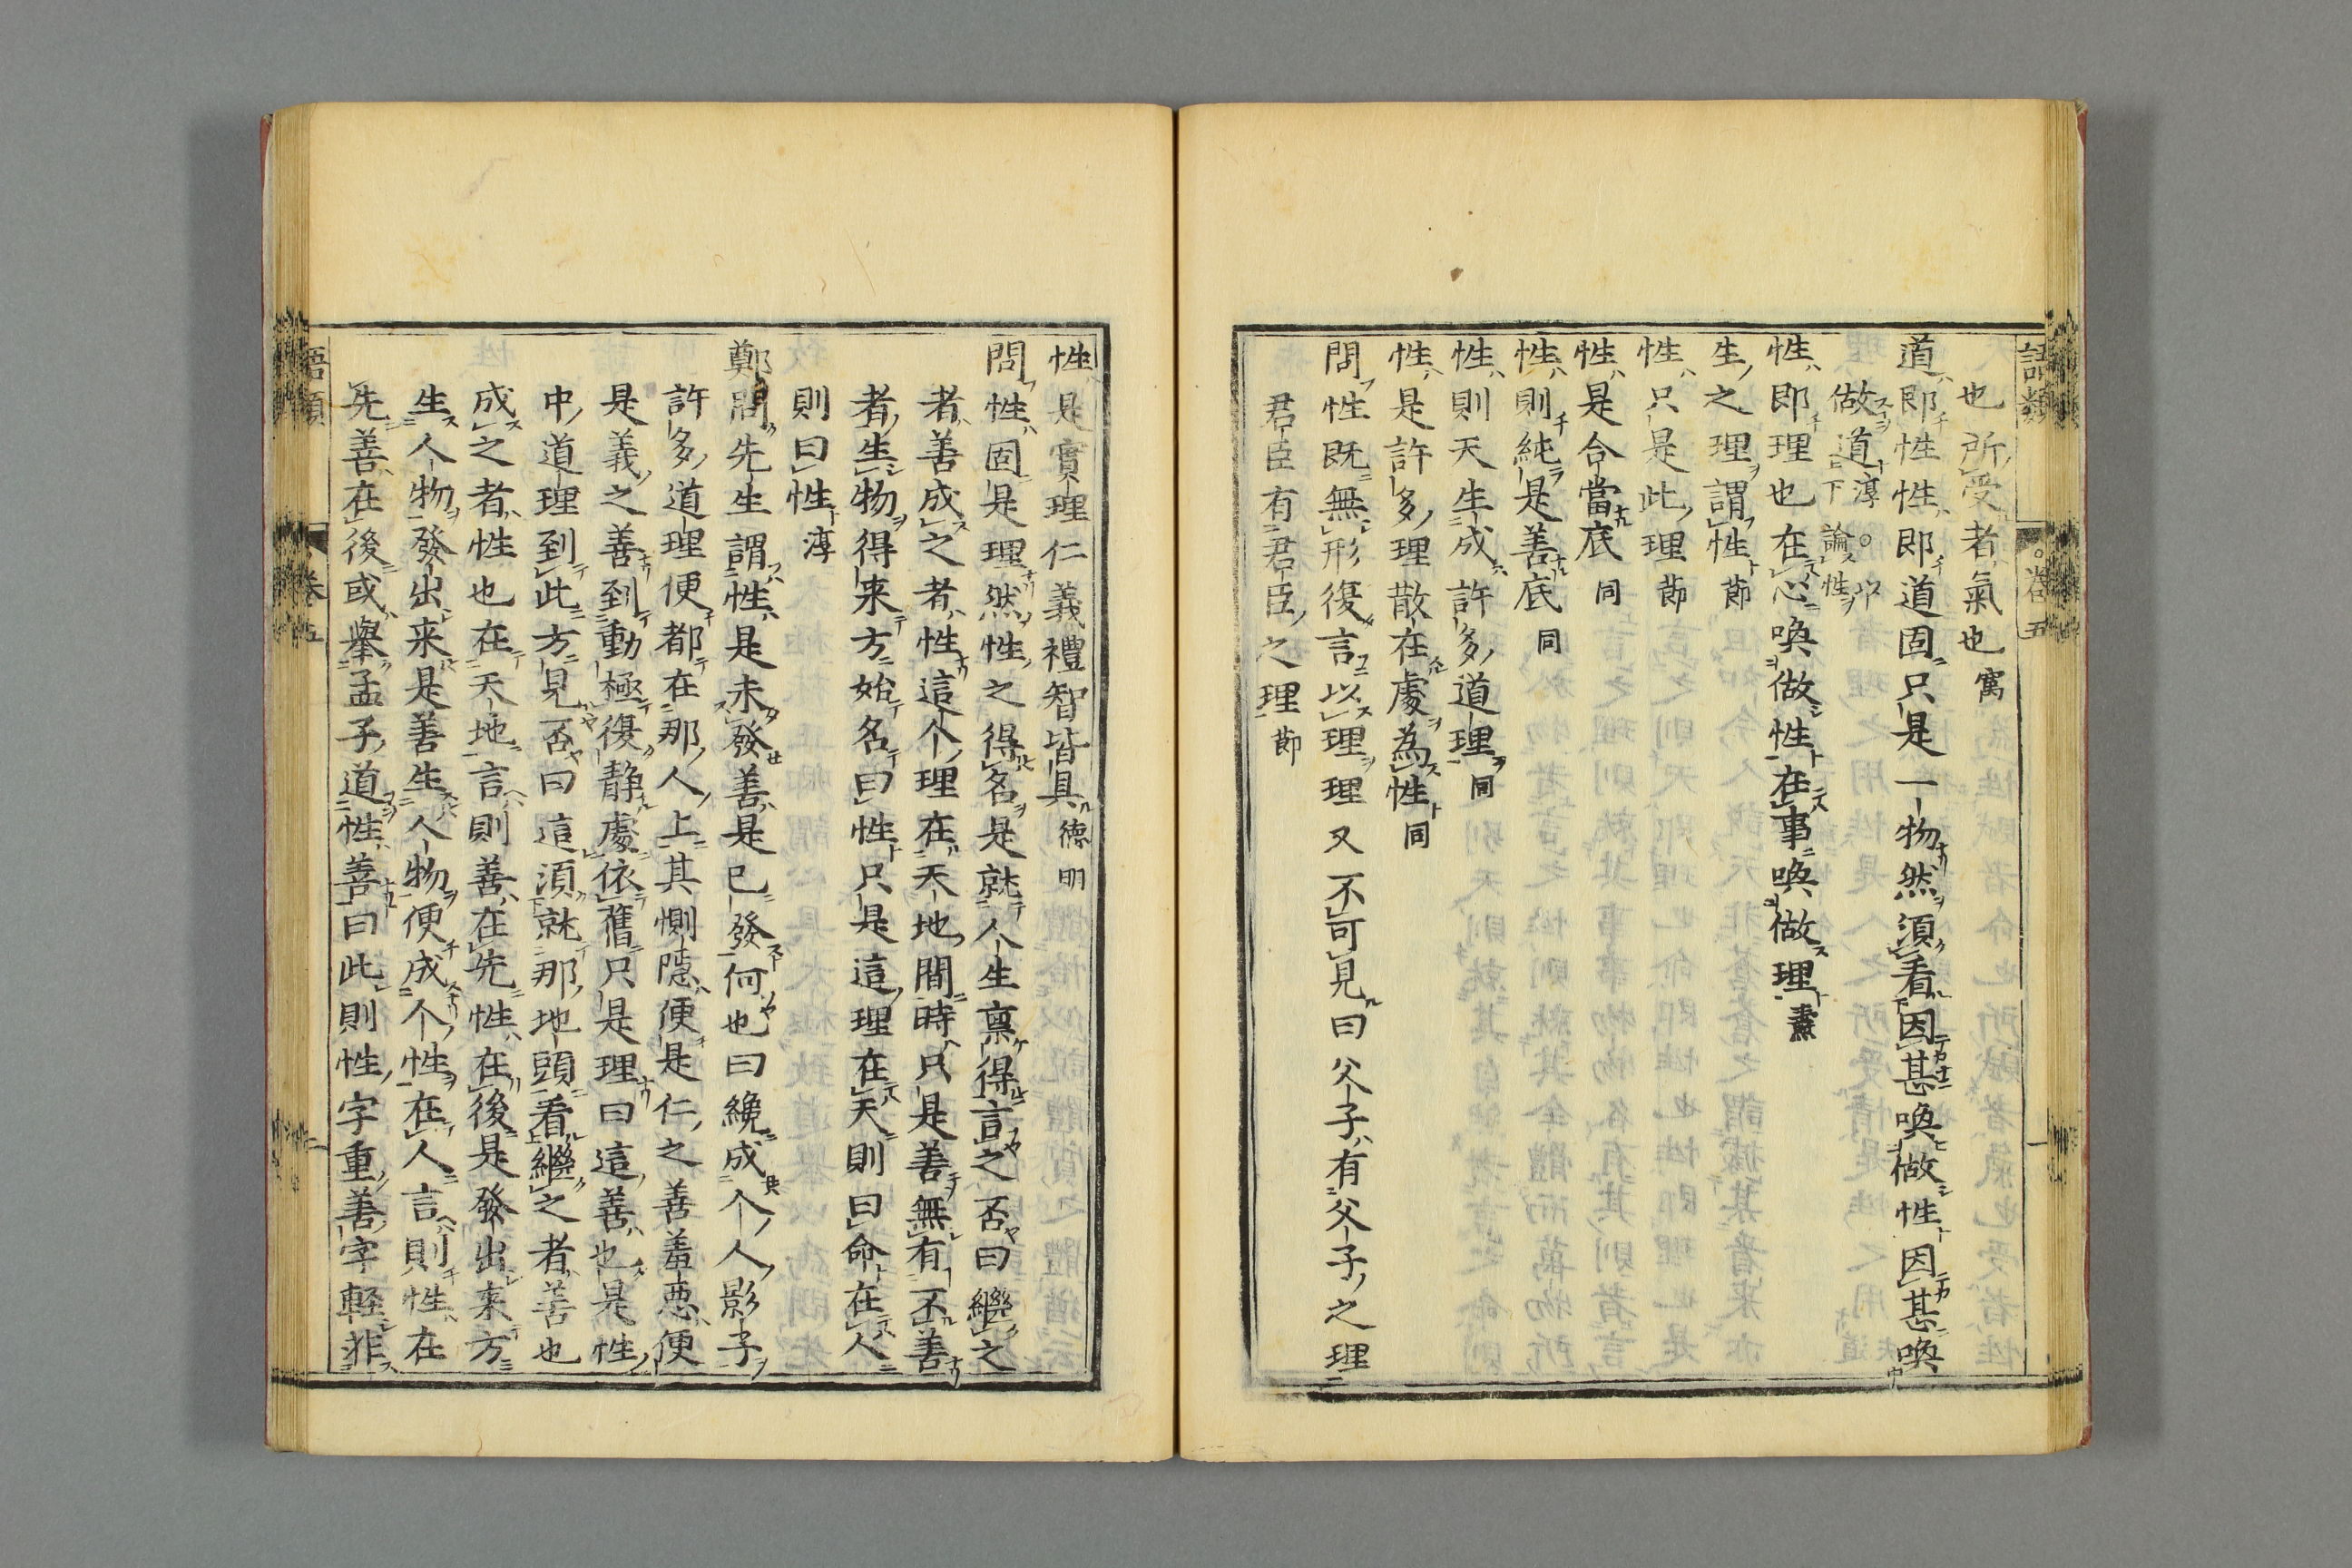 語類 卷五 一
也所受者氣也㝢
道即性性即道固只是一物然須看因甚喚做性因甚喚
做道淳。以下論性
性即理也在心喚做性在事喚做理燾
生之理謂性節
性只是此理節
性是合當底同
性則純是善底同
性則天生成許多道理同
性是許多理散在處為性同
問性既無形復言以理理又不可見曰父子有父子之理
君臣有君臣之理節
性是實理仁義禮智皆具德明
問性固是理然性之得名是就人生稟得言之否曰繼之
者善成之者性這个理在天地間時只是善無有不善
者生物得来方始名曰性只是這理在天則曰命在人
則曰性淳
鄭問先生謂性是未發善是已發何也曰纔成个人影子
許多道理便都在那人上其惻隠便是仁之善羞悪便
是義之善到動極復静處依舊只是理曰這善也是性
中道理到此方見否曰這須就那地頭看繼之者善也
成之者性也在天地言則善在先性在後是發出来方
生人物發出来是善生人物便成个性在人言則性在
先善在後或舉孟子道性善曰此則性字重善字軽非
語類 卷五 一